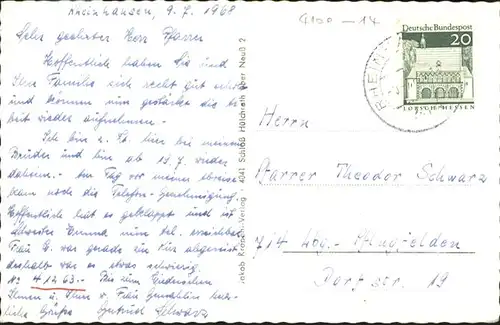 Rheinhausen, 9.7.1968
Sehr geehrter Herr Pfarrer
Hoffentlich haben Sie und
Ihre Familie sich recht gut erholt
und können nun gestärkt die Ar-
beit wieder aufnehmen.
Ich bin z. Zt. hier bei meinem
Brüder und bin ab 19.7. wieder
daheim. Am Tag vor meiner Abreise
kam noch die Telefon-Genehmigung.
Hoffentlich hat es geklappt und ist
Schwester Emma nun tel. erreichbar.
Frau G. war gerade zur Kur abgereist
deshalb war es etwas schwierig.
No 41263.- Bis zum Wiedersehen
Ihnen u. Ihrer v. Frau Gemahlin herz-
liche Grüße Gertrud Schwarz
Jakob Krapohl-Verlag 4041 Schloß Hülchrath über Neuß 2
4100-14
Deutsche Bundespost
20
LORSCH/HESSEN
RHEIN
Herrn
Pfarrer Theodor Schwarz
714 Lbg.-Pflugfelden
Dorfstr. 19